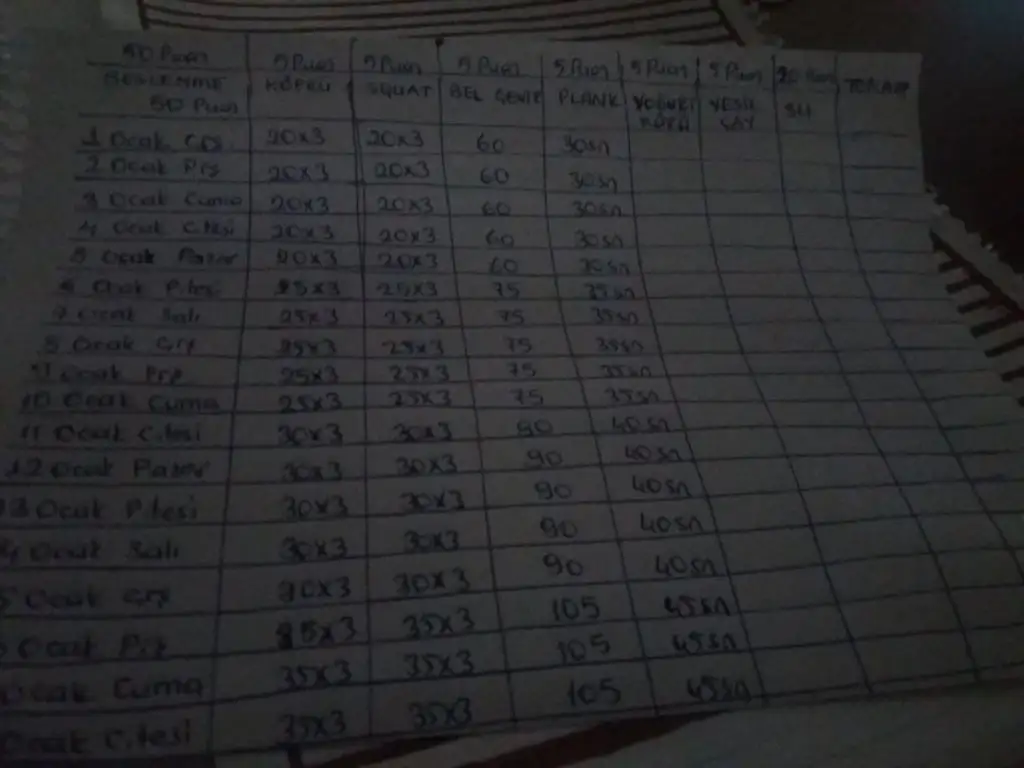 50 Puan 5 Puan 5 Puan 5 Puan 5 Puan 5 Puan 5 Puan 20 Puan TOPLAM
BESLENME KÖPRÜ SQUAT BEL ÇEVİR PLANK YOĞURT YEŞİL SU
50 Puan KÜRÜ ÇAY
1 Ocak Çrş 20x3 20x3 60 30sn
2 Ocak Prş 20x3 20x3 60 30sn
3 Ocak Cuma 20x3 20x3 60 30sn
4 Ocak C.tesi 20x3 20x3 60 30sn
5 Ocak Pazar 20x3 20x3 60 30sn
6 Ocak P.tesi 25x3 25x3 75 35sn
7 Ocak Salı 25x3 25x3 75 35sn
8 Ocak Çrş 25x3 25x3 75 35sn
9 Ocak Prş 25x3 25x3 75 35sn
10 Ocak Cuma 25x3 25x3 75 35sn
11 Ocak C.tesi 30x3 30x3 90 40sn
12 Ocak Pazar 30x3 30x3 90 40sn
13 Ocak P.tesi 30x3 30x3 90 40sn
4 Ocak Salı 30x3 30x3 90 40sn
5 Ocak Çrş 30x3 30x3 90 40sn
Ocak Prş 35x3 35x3 105 45sn
Ocak Cuma 35x3 35x3 105 45sn
Ocak C.tesi 35x3 35x3 105 45sn